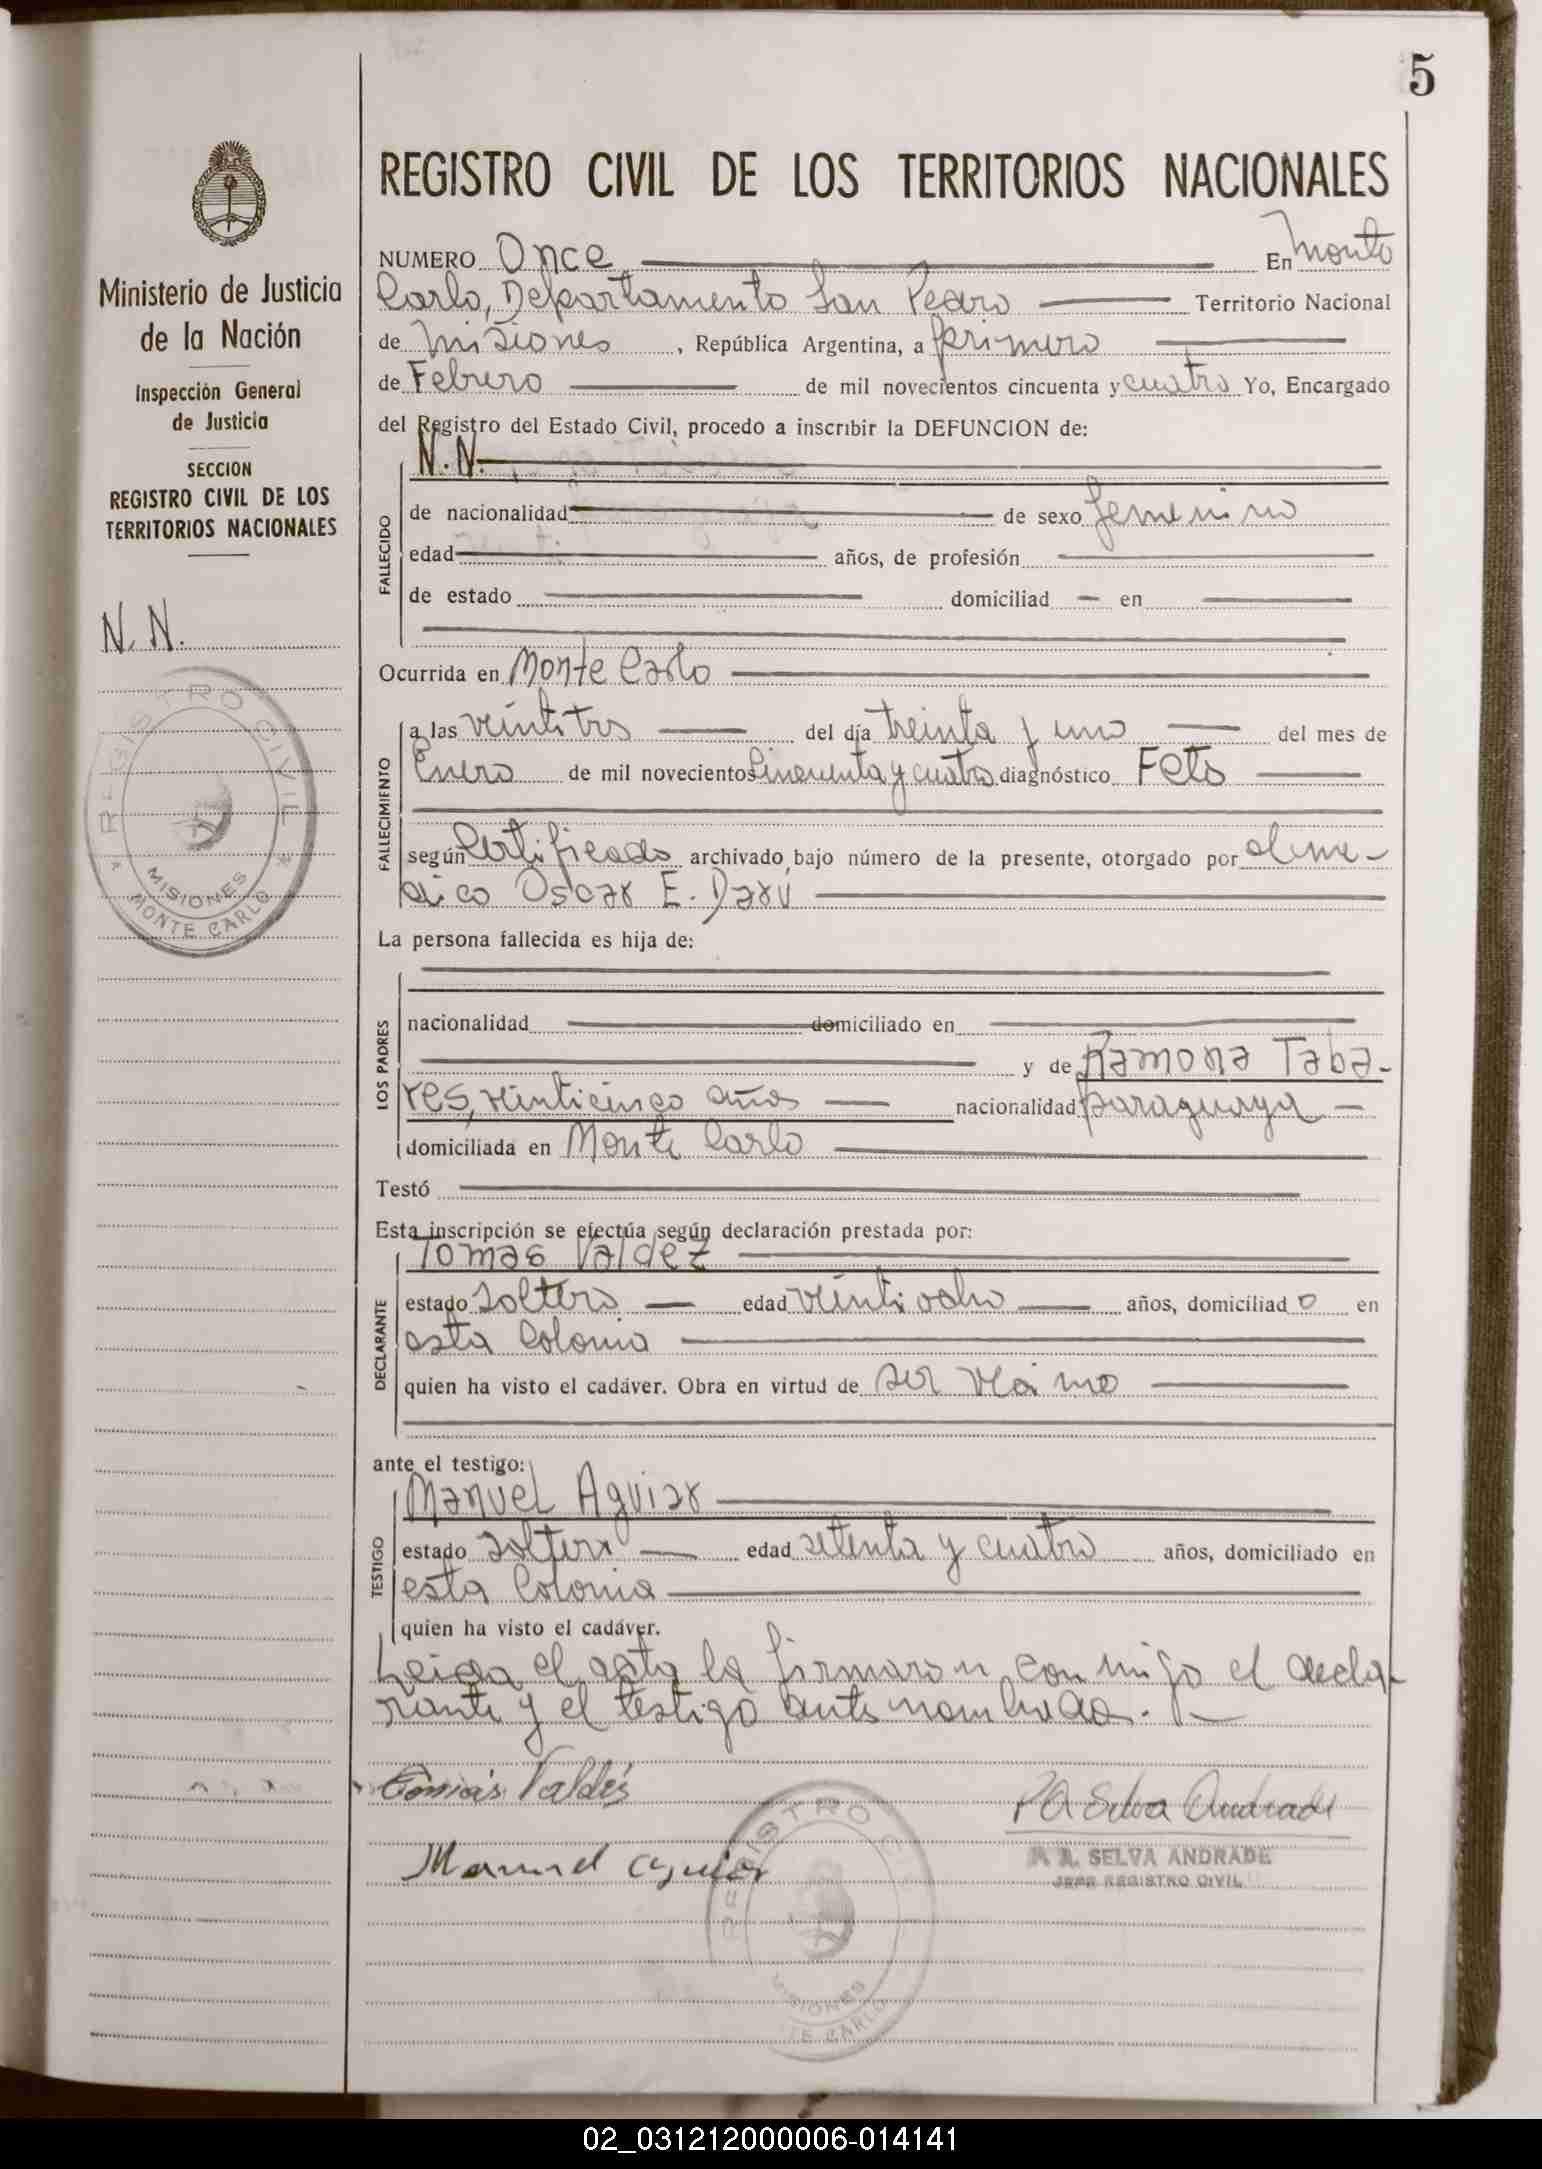 5
Ministerio de Justicia
de la Nación
Inspección General
de Justicia
SECCION
REGISTRO CIVIL DE LOS
TERRITORIOS NACIONALES
N. N.
REGISTRO CIVIL
MISIONES
MONTE CARLO
REGISTRO CIVIL DE LOS TERRITORIOS NACIONALES
NUMERO Once En Monte
Carlo, Departamento San Pedro Territorio Nacional
de Misiones, República Argentina, a primero
de Febrero de mil novecientos cincuenta y cuatro Yo, Encargado
del Registro del Estado Civil, procedo a inscribir la DEFUNCION de:
N. N.
FALLECIDO
de nacionalidad de sexo femenino
edad años, de profesión
de estado domiciliad en
Ocurrida en Monte Carlo
FALLECIMIENTO
a las veintitres del día treinta y uno del mes de
Enero de mil novecientos Cincuenta y cuatro diagnóstico Feto
según Certificado archivado bajo número de la presente, otorgado por el me-
dico Oscar E. Darú
La persona fallecida es hija de:
LOS PADRES
nacionalidad domiciliado en
y de Ramona Taba-
res, veinticinco años nacionalidad paraguaya
domiciliada en Monte Carlo
Testó
Esta inscripción se efectúa según declaración prestada por:
Tomas Valdez
DECLARANTE
estado soltero edad veintiocho años, domiciliado en
esta Colonia
quien ha visto el cadáver. Obra en virtud de ser vecino
ante el testigo:
Manuel Aguiar
TESTIGO
estado soltero edad setenta y cuatro años, domiciliado en
esta Colonia
quien ha visto el cadáver.
Leida el acta la firmaron conmigo el decla-
rante y el testigo antenombrado.
Tomás Valdés
P A Selva Andrade
Manuel Aguiar
P. A. SELVA ANDRADE
JEFE REGISTRO CIVIL
REGISTRO C
MISIONES
TE CARLO
02_031212000006-014141